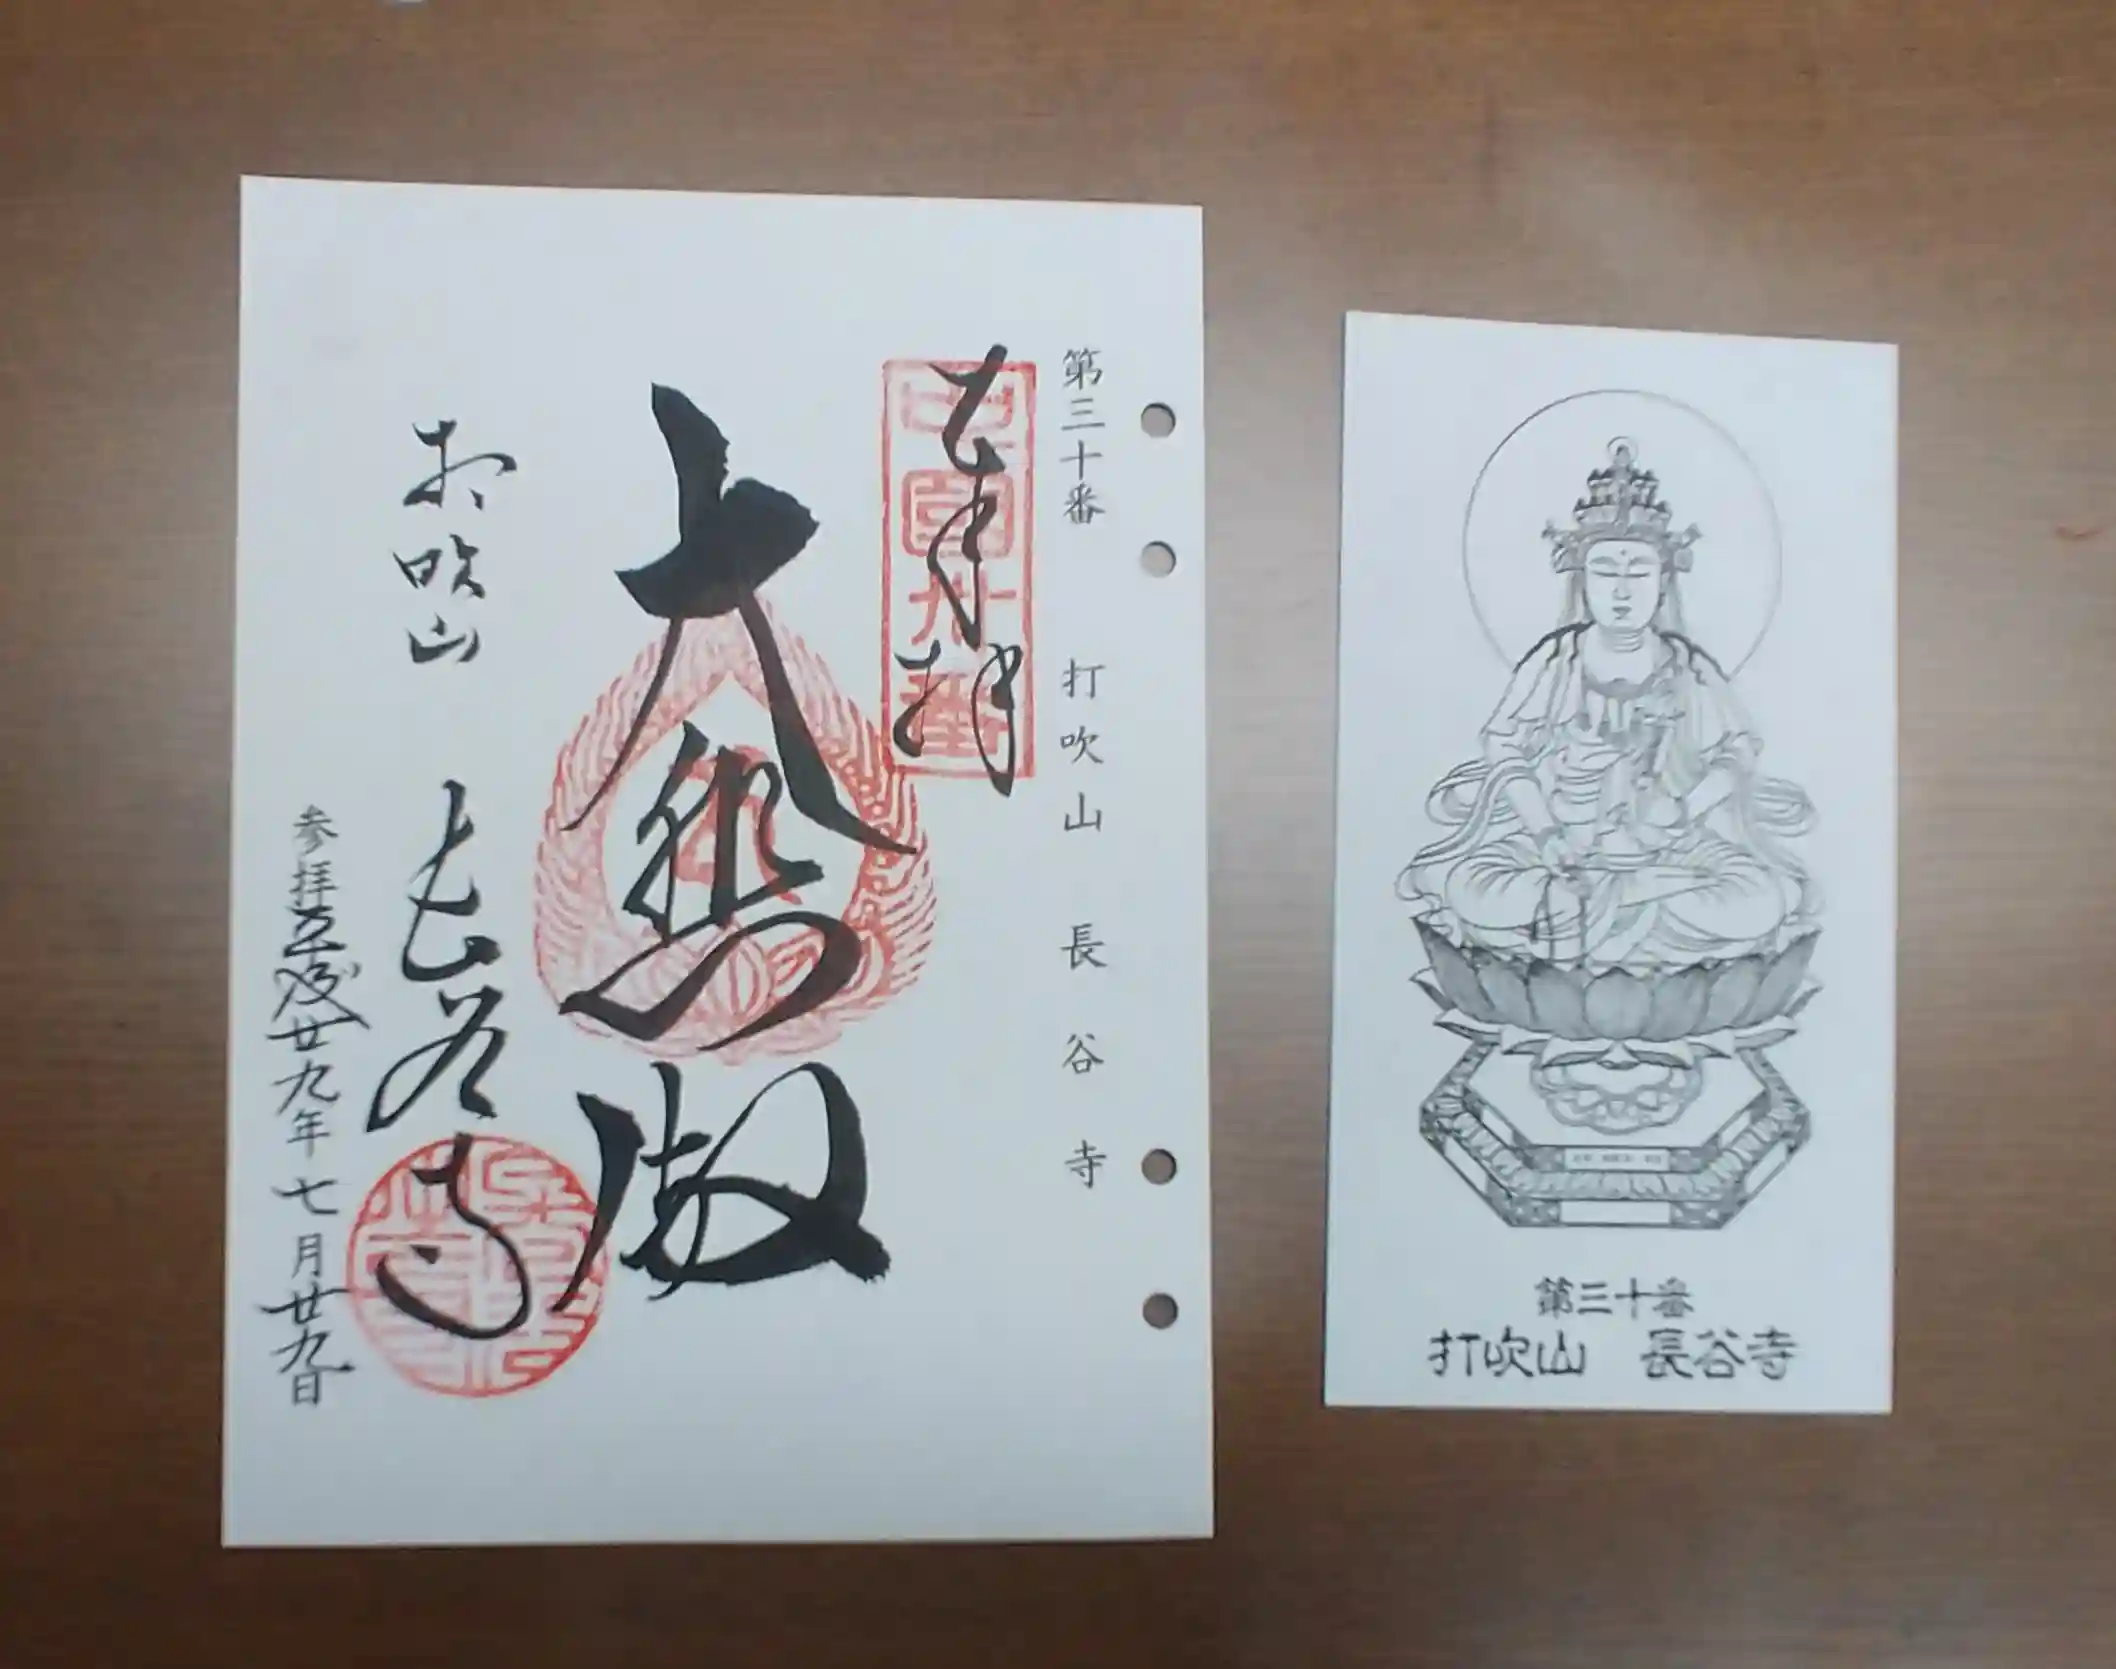 第三十番 打吹山 長谷寺
奉拝
大悲殿
打吹山 長谷寺
参拝平成廿九年七月廿九日
中国卅番
第三十番
打吹山 長谷寺